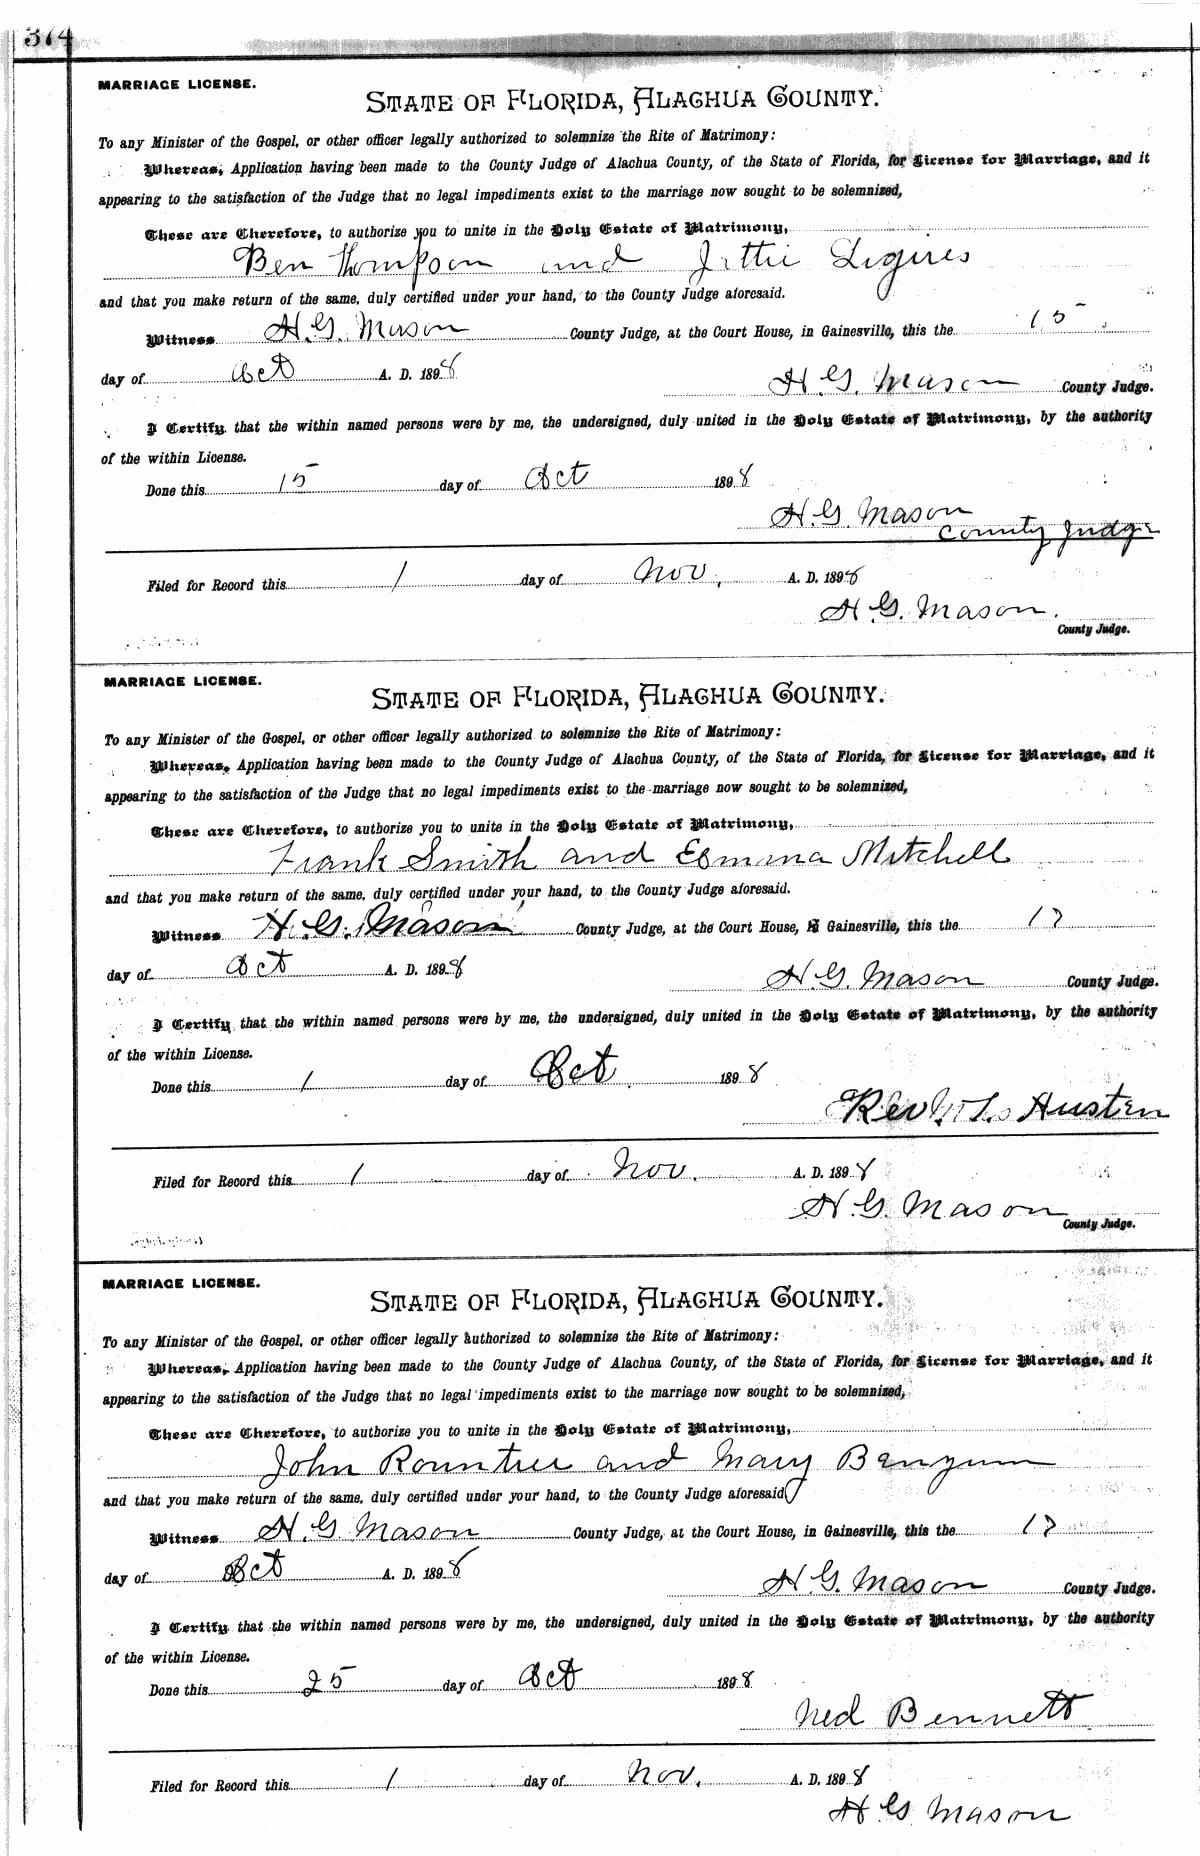 374
MARRIAGE LICENSE.
STATE OF FLORIDA, ALACHUA COUNTY.
To any Minister of the Gospel, or other officer legally authorized to solemnize the Rite of Matrimony:
Whereas, Application having been made to the County Judge of Alachua County, of the State of Florida, for License for Marriage, and it
appearing to the satisfaction of the Judge that no legal impediments exist to the marriage now sought to be solemnized,
These are Therefore, to authorize you to unite in the Holy Estate of Matrimony,
Ben Thompson and
and that you make return of the same, duly certified under your hand, to the County Judge aforesaid.
Witness H. G. Mason County Judge, at the Court House, in Gainesville, this the 15
day of Oct A. D. 1898 H. G. Mason County Judge.
I Certify that the within named persons were by me, the undersigned, duly united in the Holy Estate of Matrimony, by the authority
of the within License.
Done this 15 day of Oct 1898
H. G. Mason
County Judge
Filed for Record this 1 day of Nov. A. D. 1898
H. G. Mason.
County Judge.
MARRIAGE LICENSE.
STATE OF FLORIDA, ALACHUA COUNTY.
To any Minister of the Gospel, or other officer legally authorized to solemnize the Rite of Matrimony:
Whereas, Application having been made to the County Judge of Alachua County, of the State of Florida, for License for Marriage, and it
appearing to the satisfaction of the Judge that no legal impediments exist to the marriage now sought to be solemnized,
These are Therefore, to authorize you to unite in the Holy Estate of Matrimony,
Frank Smith and Emma Mitchell
and that you make return of the same, duly certified under your hand, to the County Judge aforesaid.
Witness H. G. Mason County Judge, at the Court House, in Gainesville, this the 17
day of Oct A. D. 1898 H. G. Mason County Judge.
I Certify that the within named persons were by me, the undersigned, duly united in the Holy Estate of Matrimony, by the authority
of the within License.
Done this 1 day of Oct 1898
Rev Husten
Filed for Record this 1 day of Nov. A. D. 1898
H. G. Mason
County Judge.
MARRIAGE LICENSE.
STATE OF FLORIDA, ALACHUA COUNTY.
To any Minister of the Gospel, or other officer legally authorized to solemnize the Rite of Matrimony:
Whereas, Application having been made to the County Judge of Alachua County, of the State of Florida, for License for Marriage, and it
appearing to the satisfaction of the Judge that no legal impediments exist to the marriage now sought to be solemnized,
These are Therefore, to authorize you to unite in the Holy Estate of Matrimony,
John Rountree and Mary Benyum
and that you make return of the same, duly certified under your hand, to the County Judge aforesaid
Witness H. G. Mason County Judge, at the Court House, in Gainesville, this the 17
day of Oct A. D. 1898 H. G. Mason County Judge.
I Certify that the within named persons were by me, the undersigned, duly united in the Holy Estate of Matrimony, by the authority
of the within License.
Done this 25 day of Oct 1898
Ned Bennett
Filed for Record this 1 day of Nov. A. D. 1898
H G Mason